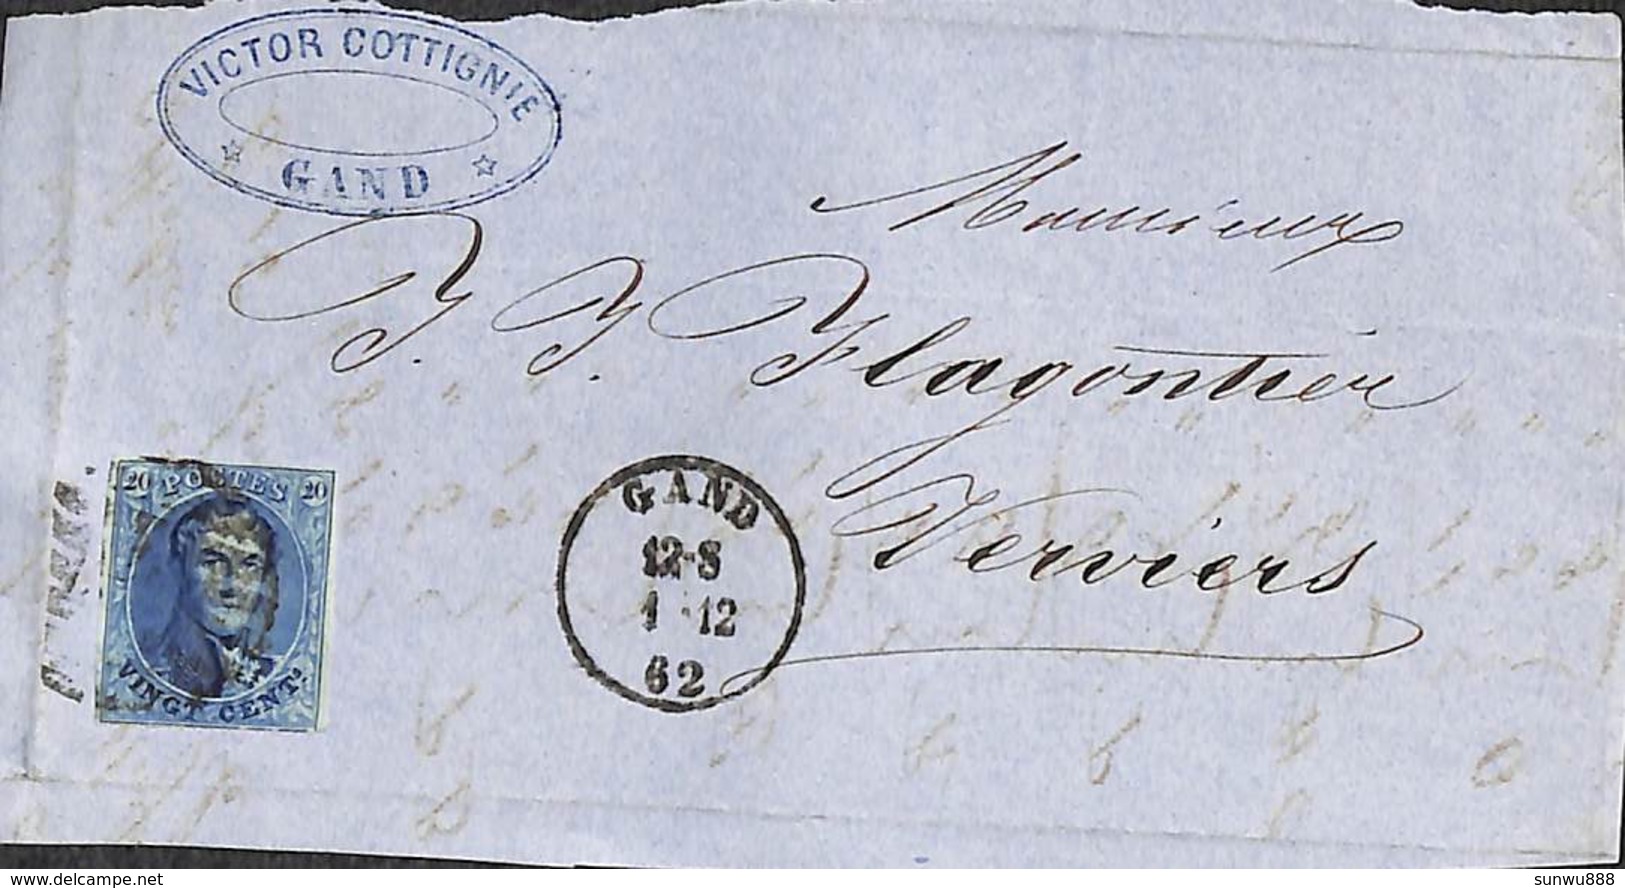 VICTOR COTTIGNIE
GAND
Messieurs
J. J. Flagontier
Verviers
20 POSTES 20
VINGT CENTS
GAND
12-8
1 12
62
delcampe.net
sunwu888